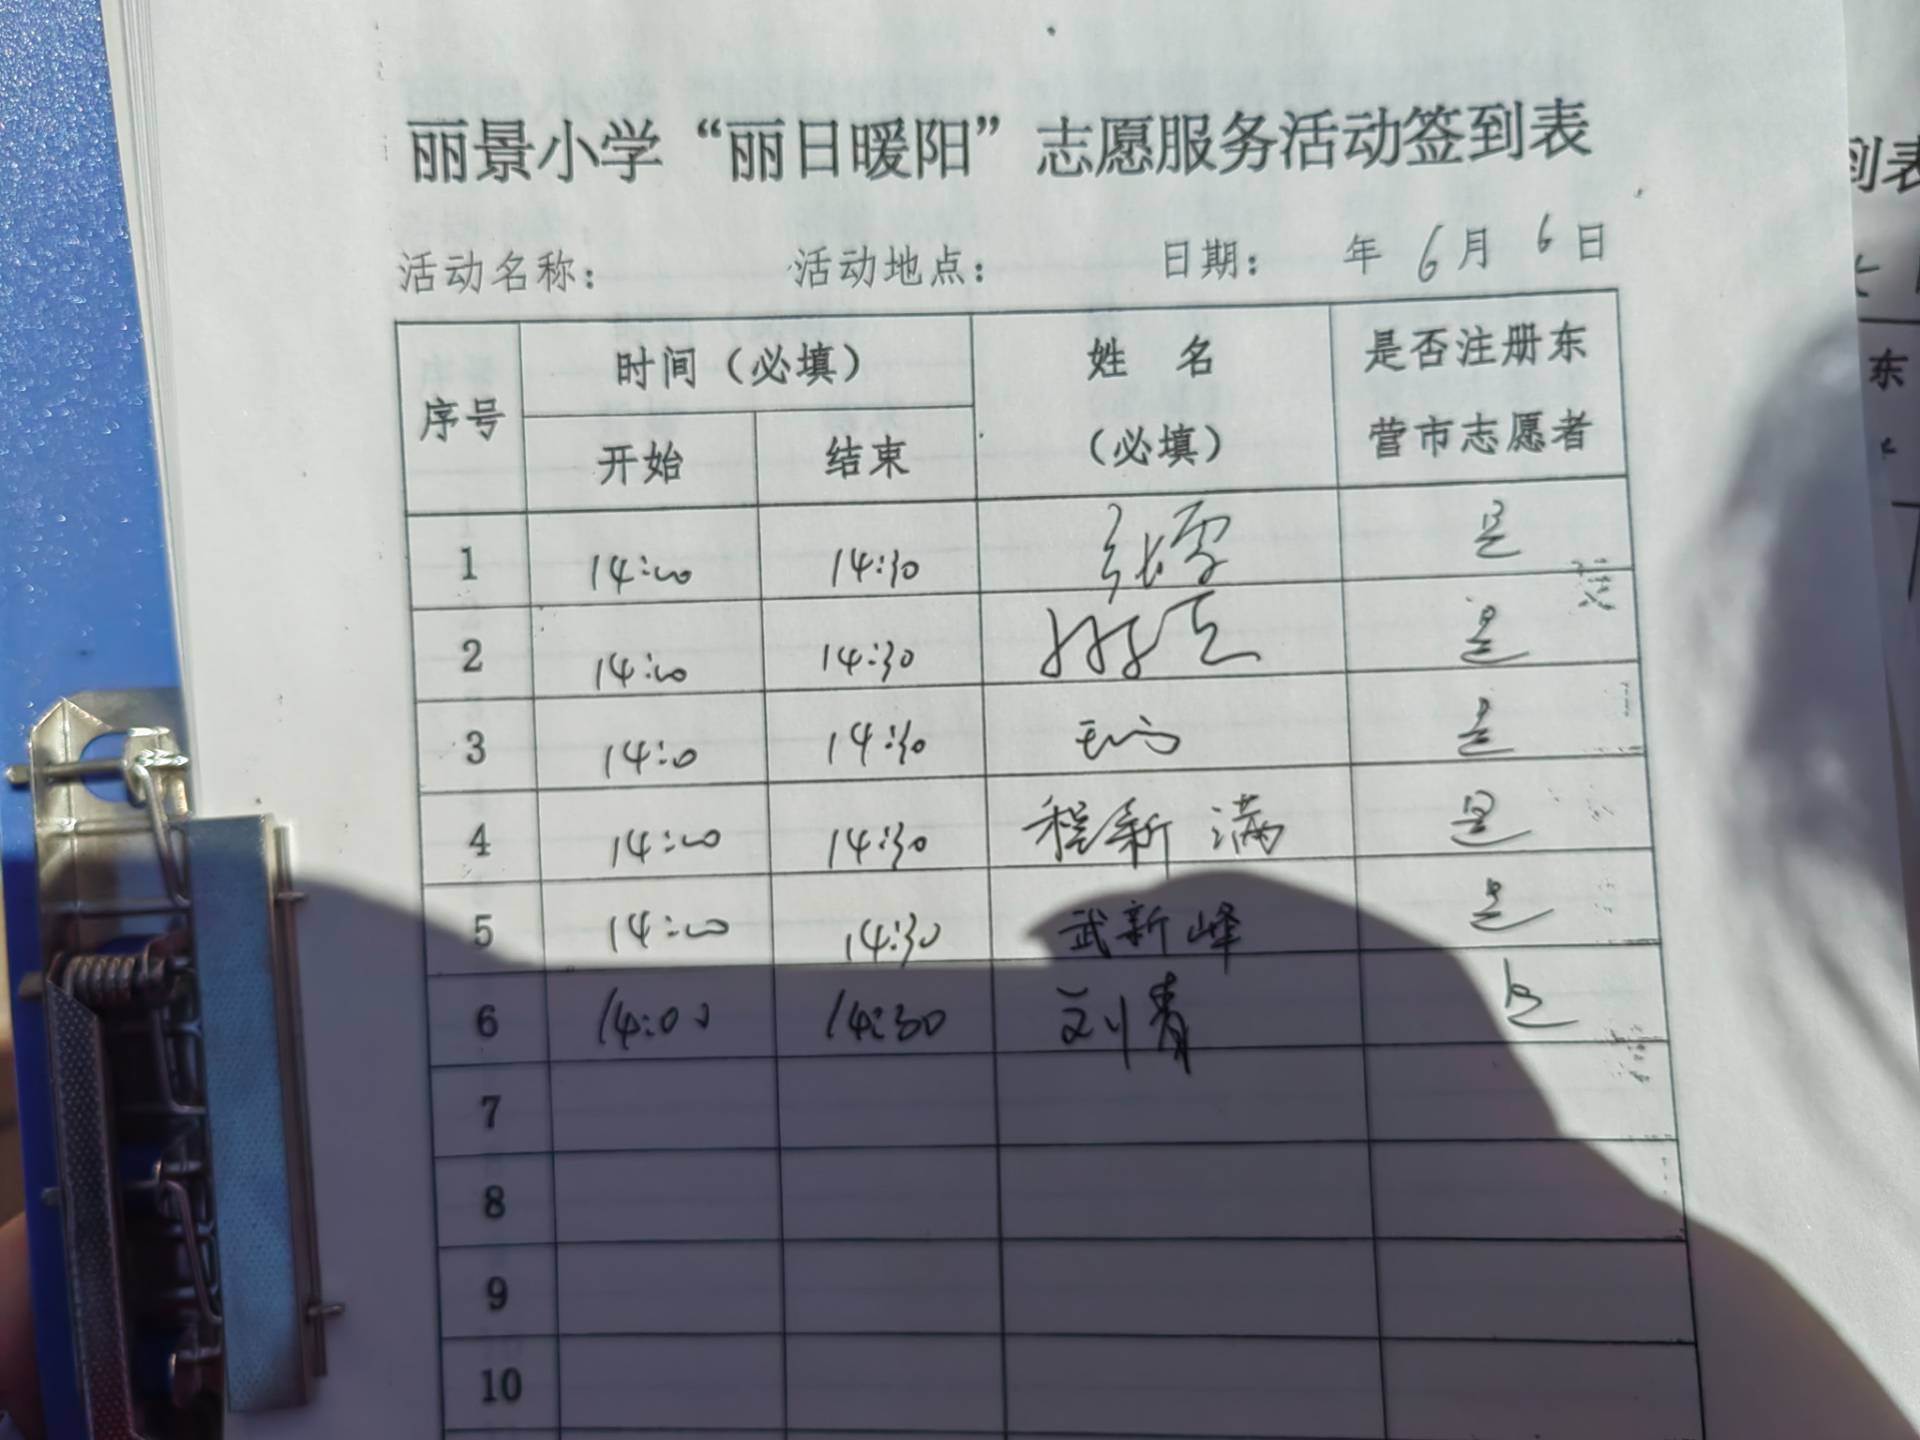 丽景小学“丽日暖阳”志愿服务活动签到表
活动名称： 活动地点： 日期： 年 6 月 6 日
序号 时间（必填） 姓 名（必填） 是否注册东营市志愿者
开始 结束
1 14:00 14:30 是
2 14:00 14:30 是
3 14:0 14:30 是
4 14:00 14:30 程新满 是
5 14:00 14:30 武新峰 是
6 14:00 14:30 刘青 是
7
8
9
10
到表
东